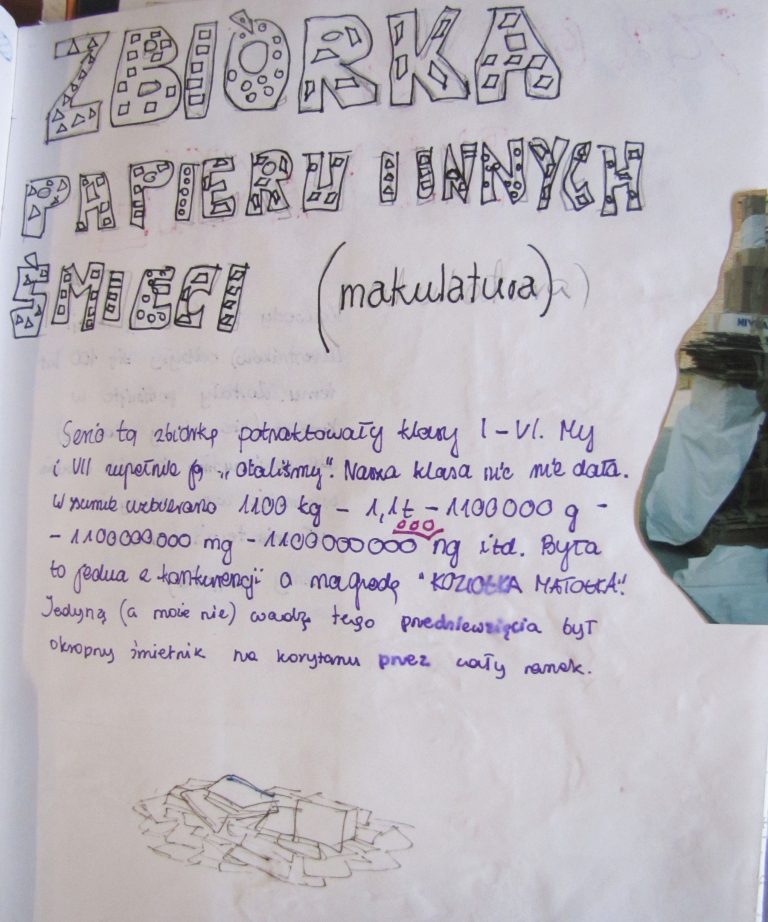 ZBIÓRKA
PAPIERU I INNYCH
ŚMIECI (makulatura)
Serio tą zbiórkę potraktowały klasy I - VI. My
i VII zupełnie ją "olaliśmy". Nasza klasa nic nie dała.
W sumie uzbierano 1100 kg - 1,1t - 1100000 g -
- 1100000000 mg - 1100000000 000 ng itd. Była
to jedna z konkurencji o nagrodę "KOZIOŁKA MATOŁKA".
Jedyną (a może nie) wadą tego przedsięwzięcia był
okropny śmietnik na korytarzu przez cały ranek.
NIVEA